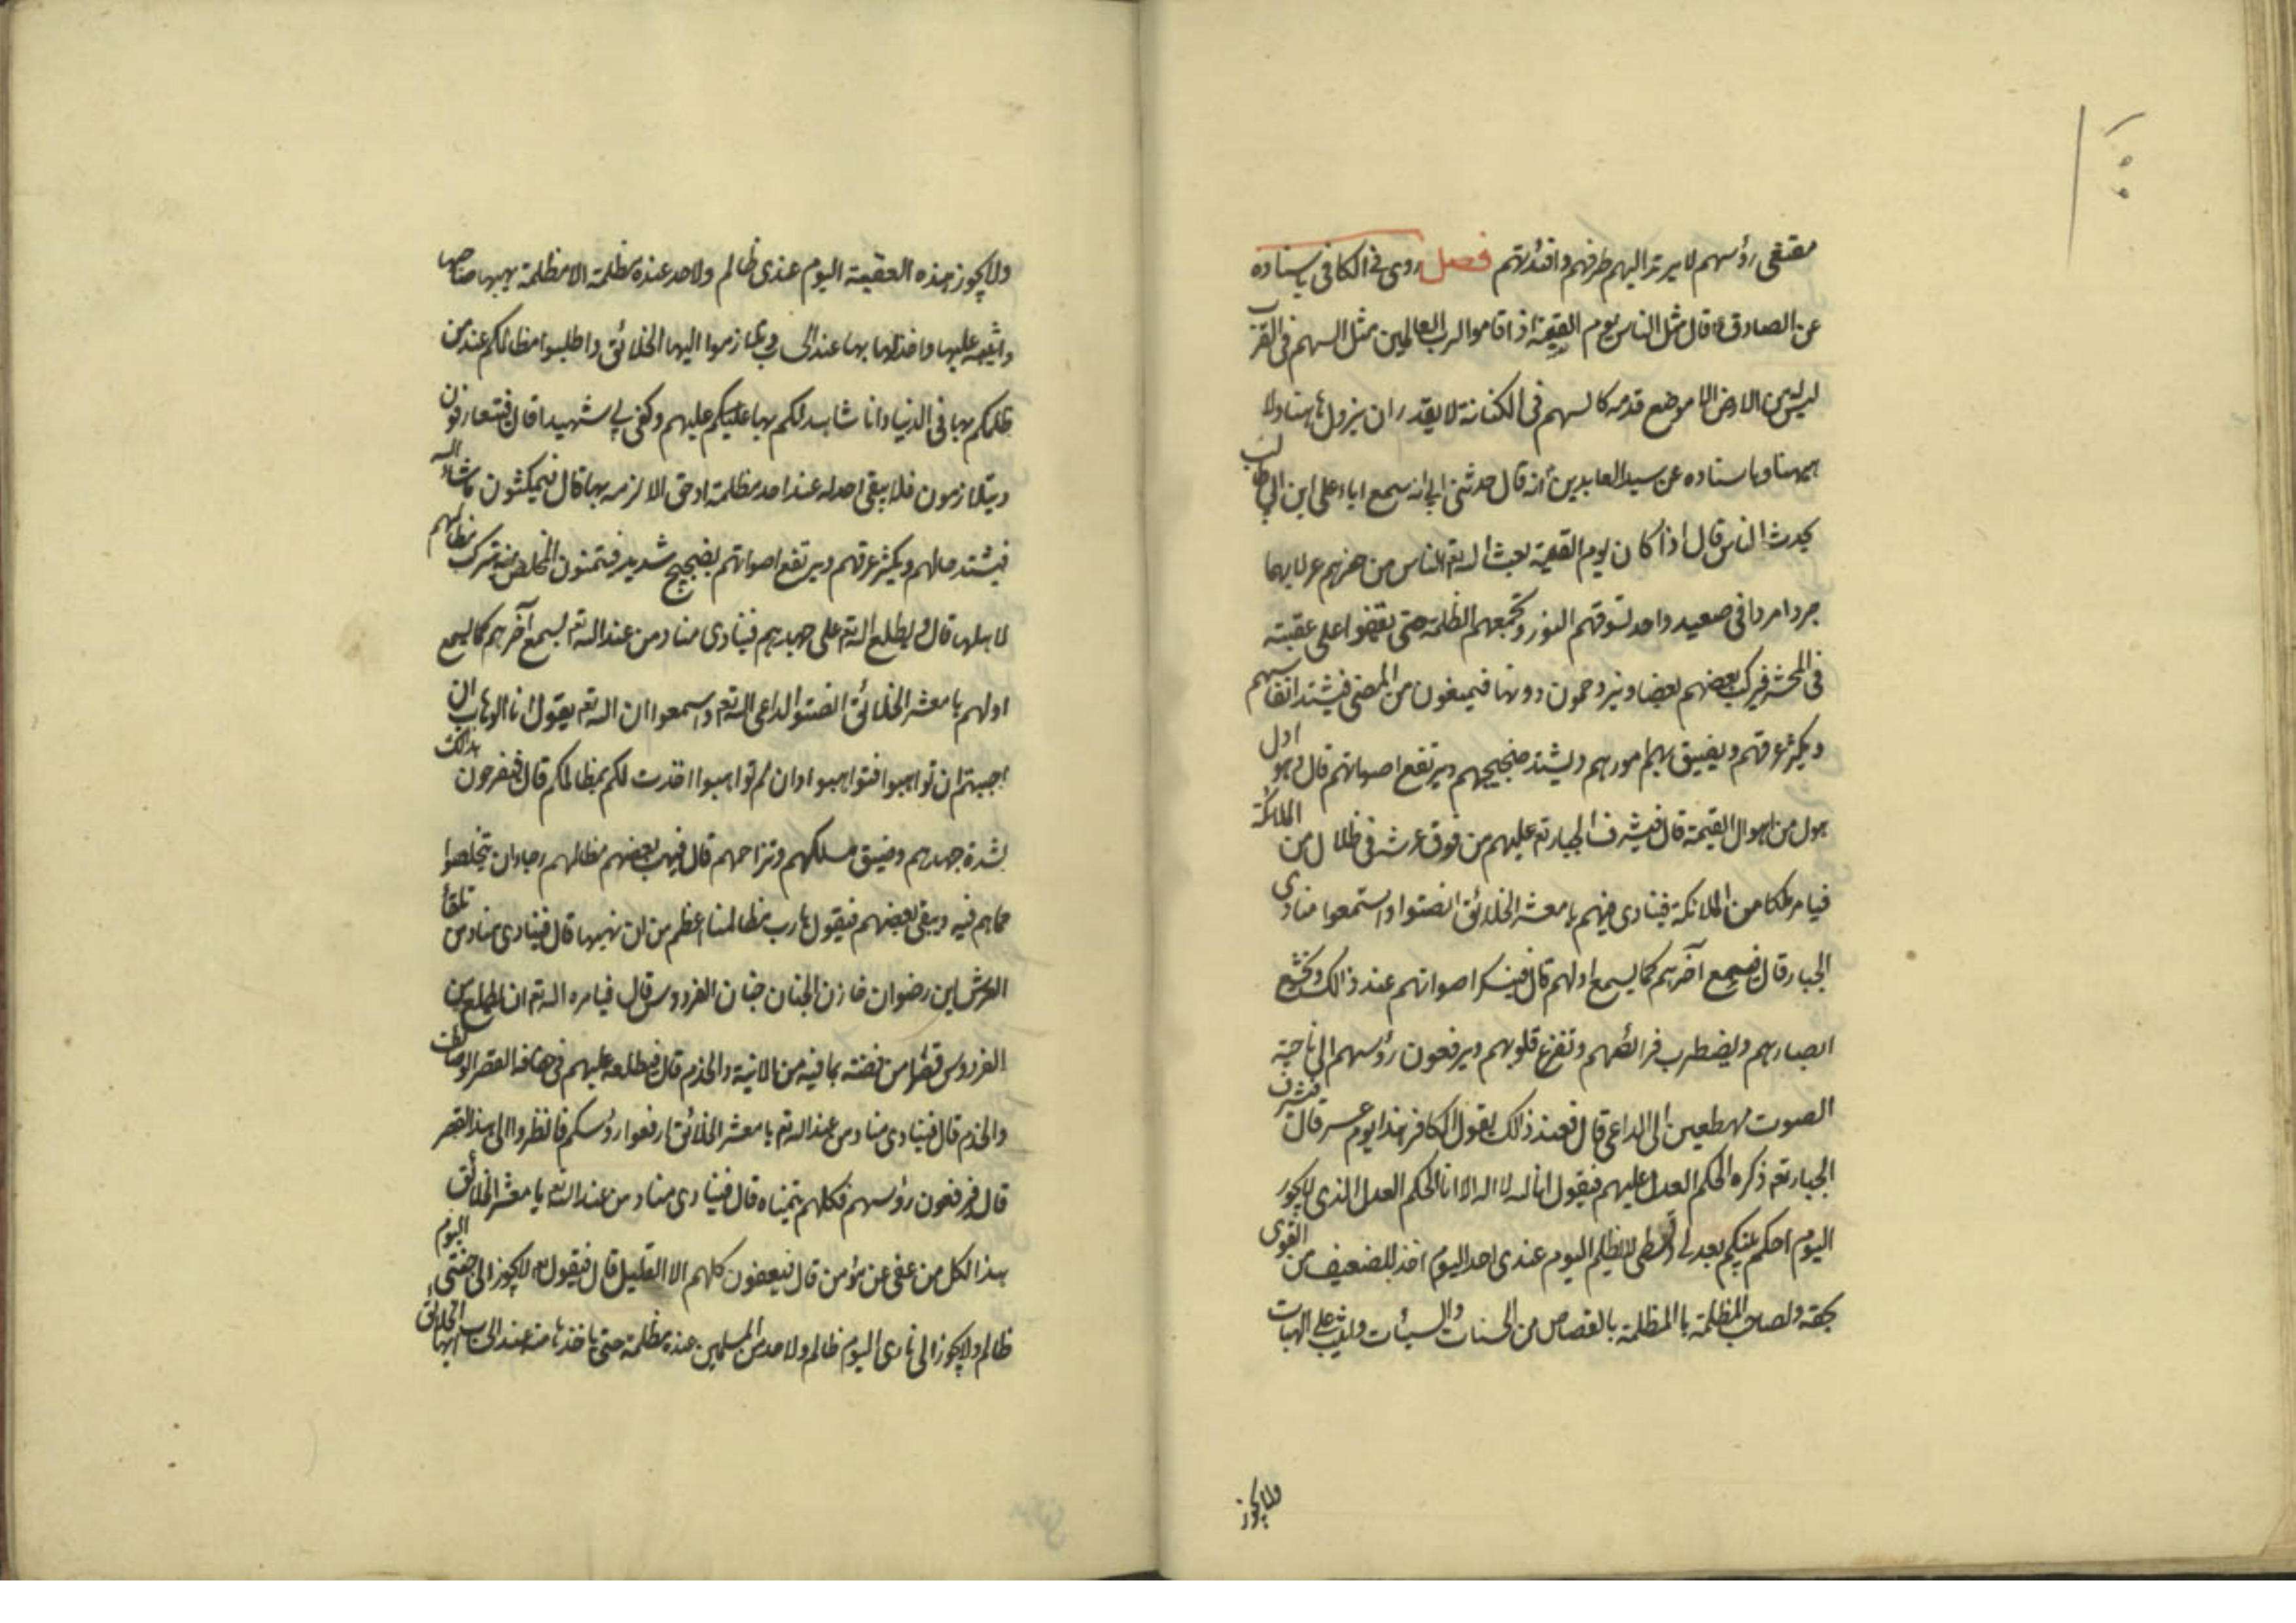 مقنعی رؤسهم لا یرتد الیهم طرفهم وافئدتهم فصل روی فی الکافی باسناده
عن الصادق ع قال مثل الناس یوم القیمة اذا قاموا لرب العالمین مثل السهم فی القرب
لیس له من الارض الا موضع قدمه کالسهم فی الکنانة لا یقدر ان یزول هاهنا ولا
هیهنا وباسناده عن سید العابدین انه قال حدثنی ابی انه سمع اباه علی ابن ابی طالب
یحدث الناس قال اذا کان یوم القیمة بعث الله تع الناس من حفرهم عزلا بهما
جردا مردا فی صعید واحد تسوقهم النور وتجمعهم الظلمة حتی یقفوا علی عقبة
فی المحشر فیرکب بعضهم بعضا ویزدحمون دونها فیمنعون من المضی فیشتد انفاسهم
ویکثر عرقهم ویضیق بهم امورهم ویشتد ضجیجهم ویرتفع اصواتهم قال وهو اول
هول من اهوال القیمة قال فیشرف الجبار تع علیهم من فوق عرشه فی ظلال من الملائکة
فیامر ملکا من الملائکة فینادی فیهم یا معشر الخلائق انصتوا واستمعوا منادی
الجبار قال فیسمع آخرهم کما یسمع اولهم قال فینکسر اصواتهم عند ذالک وتخشع
ابصارهم ویضطرب فرائصهم وتفزع قلوبهم ویرفعون رؤسهم الی ناحیة
الصوت مهطعین الی الداعی قال فعند ذالک یقول الکافر هذا یوم عسر قال فیشرف
الجبار تع ذکره الحکم العدل علیهم فیقول انا الله لا اله الا انا الحکم العدل الذی لا یجور
الیوم احکم بینکم بعدلی وقسطی لا یظلم الیوم عندی احد الیوم اخذ للضعیف من القوی
بحقه ولصاحب المظلمة بالمظلمة بالقصاص من الحسنات والسیئات واثیب علی الهبات
ولا یجوز
ولا یجوز هذه العقبة الیوم عندی ظالم ولا حد عنده مظلمة الا مظلمة یهبها صاحبها
واثیبه علیها واخذ له بها عند الحساب وتلازموا ایها الخلائق واطلبوا مظالمکم عند من
ظلمکم بها فی الدنیا وانا شاهد لکم بها علیکم علیهم وکفی بی شهیدا قال فیتعارفون
ویتلازمون فلا یبقی احد له عند احد مظلمة او حق الا لزمه بها قال فیمکثون ما شاء الله
فیشتد حالهم ویکثر عرقهم ویرتفع اصواتهم بضجیج شدید فیتمنون المخلص منه بترک مظالمهم
لاهلها قال ویطلع الله تع علی جهدهم فینادی مناد من عند الله تع یسمع آخرهم کما یسمع
اولهم یا معشر الخلائق انصتوا لداعی الله تع واسمعوا ان الله تع یقول انا الوهاب ان
احببتم ان تواهبوا فتواهبوا وان لم تواهبوا اخذت لکم بمظالمکم قال فیفرحون بذالک
لشدة جهدهم وضیق مسلکهم وتزاحمهم قال فیهب بعضهم مظالهم رجاء ان یتخلصوا
مما هم فیه ویبقی بعضهم فیقول یا رب مظالمنا اعظم من ان نهبها قال فینادی مناد من تلقاء
العرش این رضوان خازن الجنان جنان الفردوس قال فیامره الله تع ان یطلع من
الفردوس قصرا من فضة بما فیه من الانیة والخدم قال فیطلعه علیهم فی حفافة القصر الوصائف
والخدم قال فینادی مناد من عند الله تع یا معشر الخلائق ارفعوا رؤسکم فانظروا الی هذا القصر
قال فیرفعون رؤسهم فکلهم یتمناه قال فینادی مناد من عند الله تع یا معشر الخلائق
هذا لکل من عفی عن مؤمن قال فیعفون کلهم الا القلیل قال فیقول الله لا یجوز الی جنتی الیوم
ظالم ولا یجوز الی ناری الیوم ظالم ولا حد من المسلمین عنده مظلمة حتی یاخذها منه عند الحساب ایها الخلائق